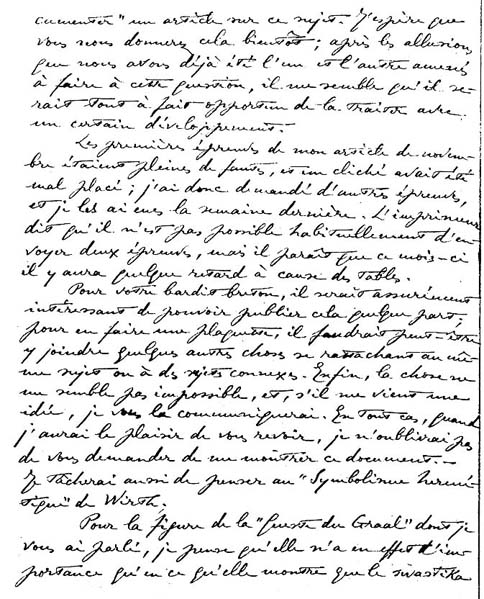 cumenter" un article sur ce sujet. J'espère que
vous nous donnerez cela bientôt ; après les allusions
que nous avons déjà été l'un et l'autre amenés
à faire à cette question, il me semble qu'il se-
rait tout à fait opportun de la traiter avec
un certain développement.
Les premières épreuves de mon article de novem-
bre étaient pleines de fautes, et un cliché avait été
mal placé ; j'ai donc demandé d'autres épreuves,
et je les ai eues la semaine dernière. L'imprimeur
dit qu'il n'est pas possible habituellement d'en-
voyer deux épreuves, mais il paraît que ce mois-ci
il y aura quelque retard à cause des tables.
Pour votre bardit breton, il serait assurément
intéressant de pouvoir publier cela quelque part ;
pour en faire une plaquette, il faudrait peut-être
y joindre quelques autres choses se rattachant au mê-
me sujet ou à des sujets connexes. Enfin, la chose ne
me semble pas impossible, et, s'il me vient une
idée, je vous la communiquerai. En tout cas, quand
j'aurai le plaisir de vous revoir, je n'oublierai pas
de vous demander de me montrer ce document. –
Je tâcherai aussi de penser au "Symbolisme hermé-
tique" de Wirth.
Pour la figure de la "Queste du Graal" dont je
vous ai parlé, je pense qu'elle n'a en effet d'im-
portance qu'en ce qu'elle montre que le swastika